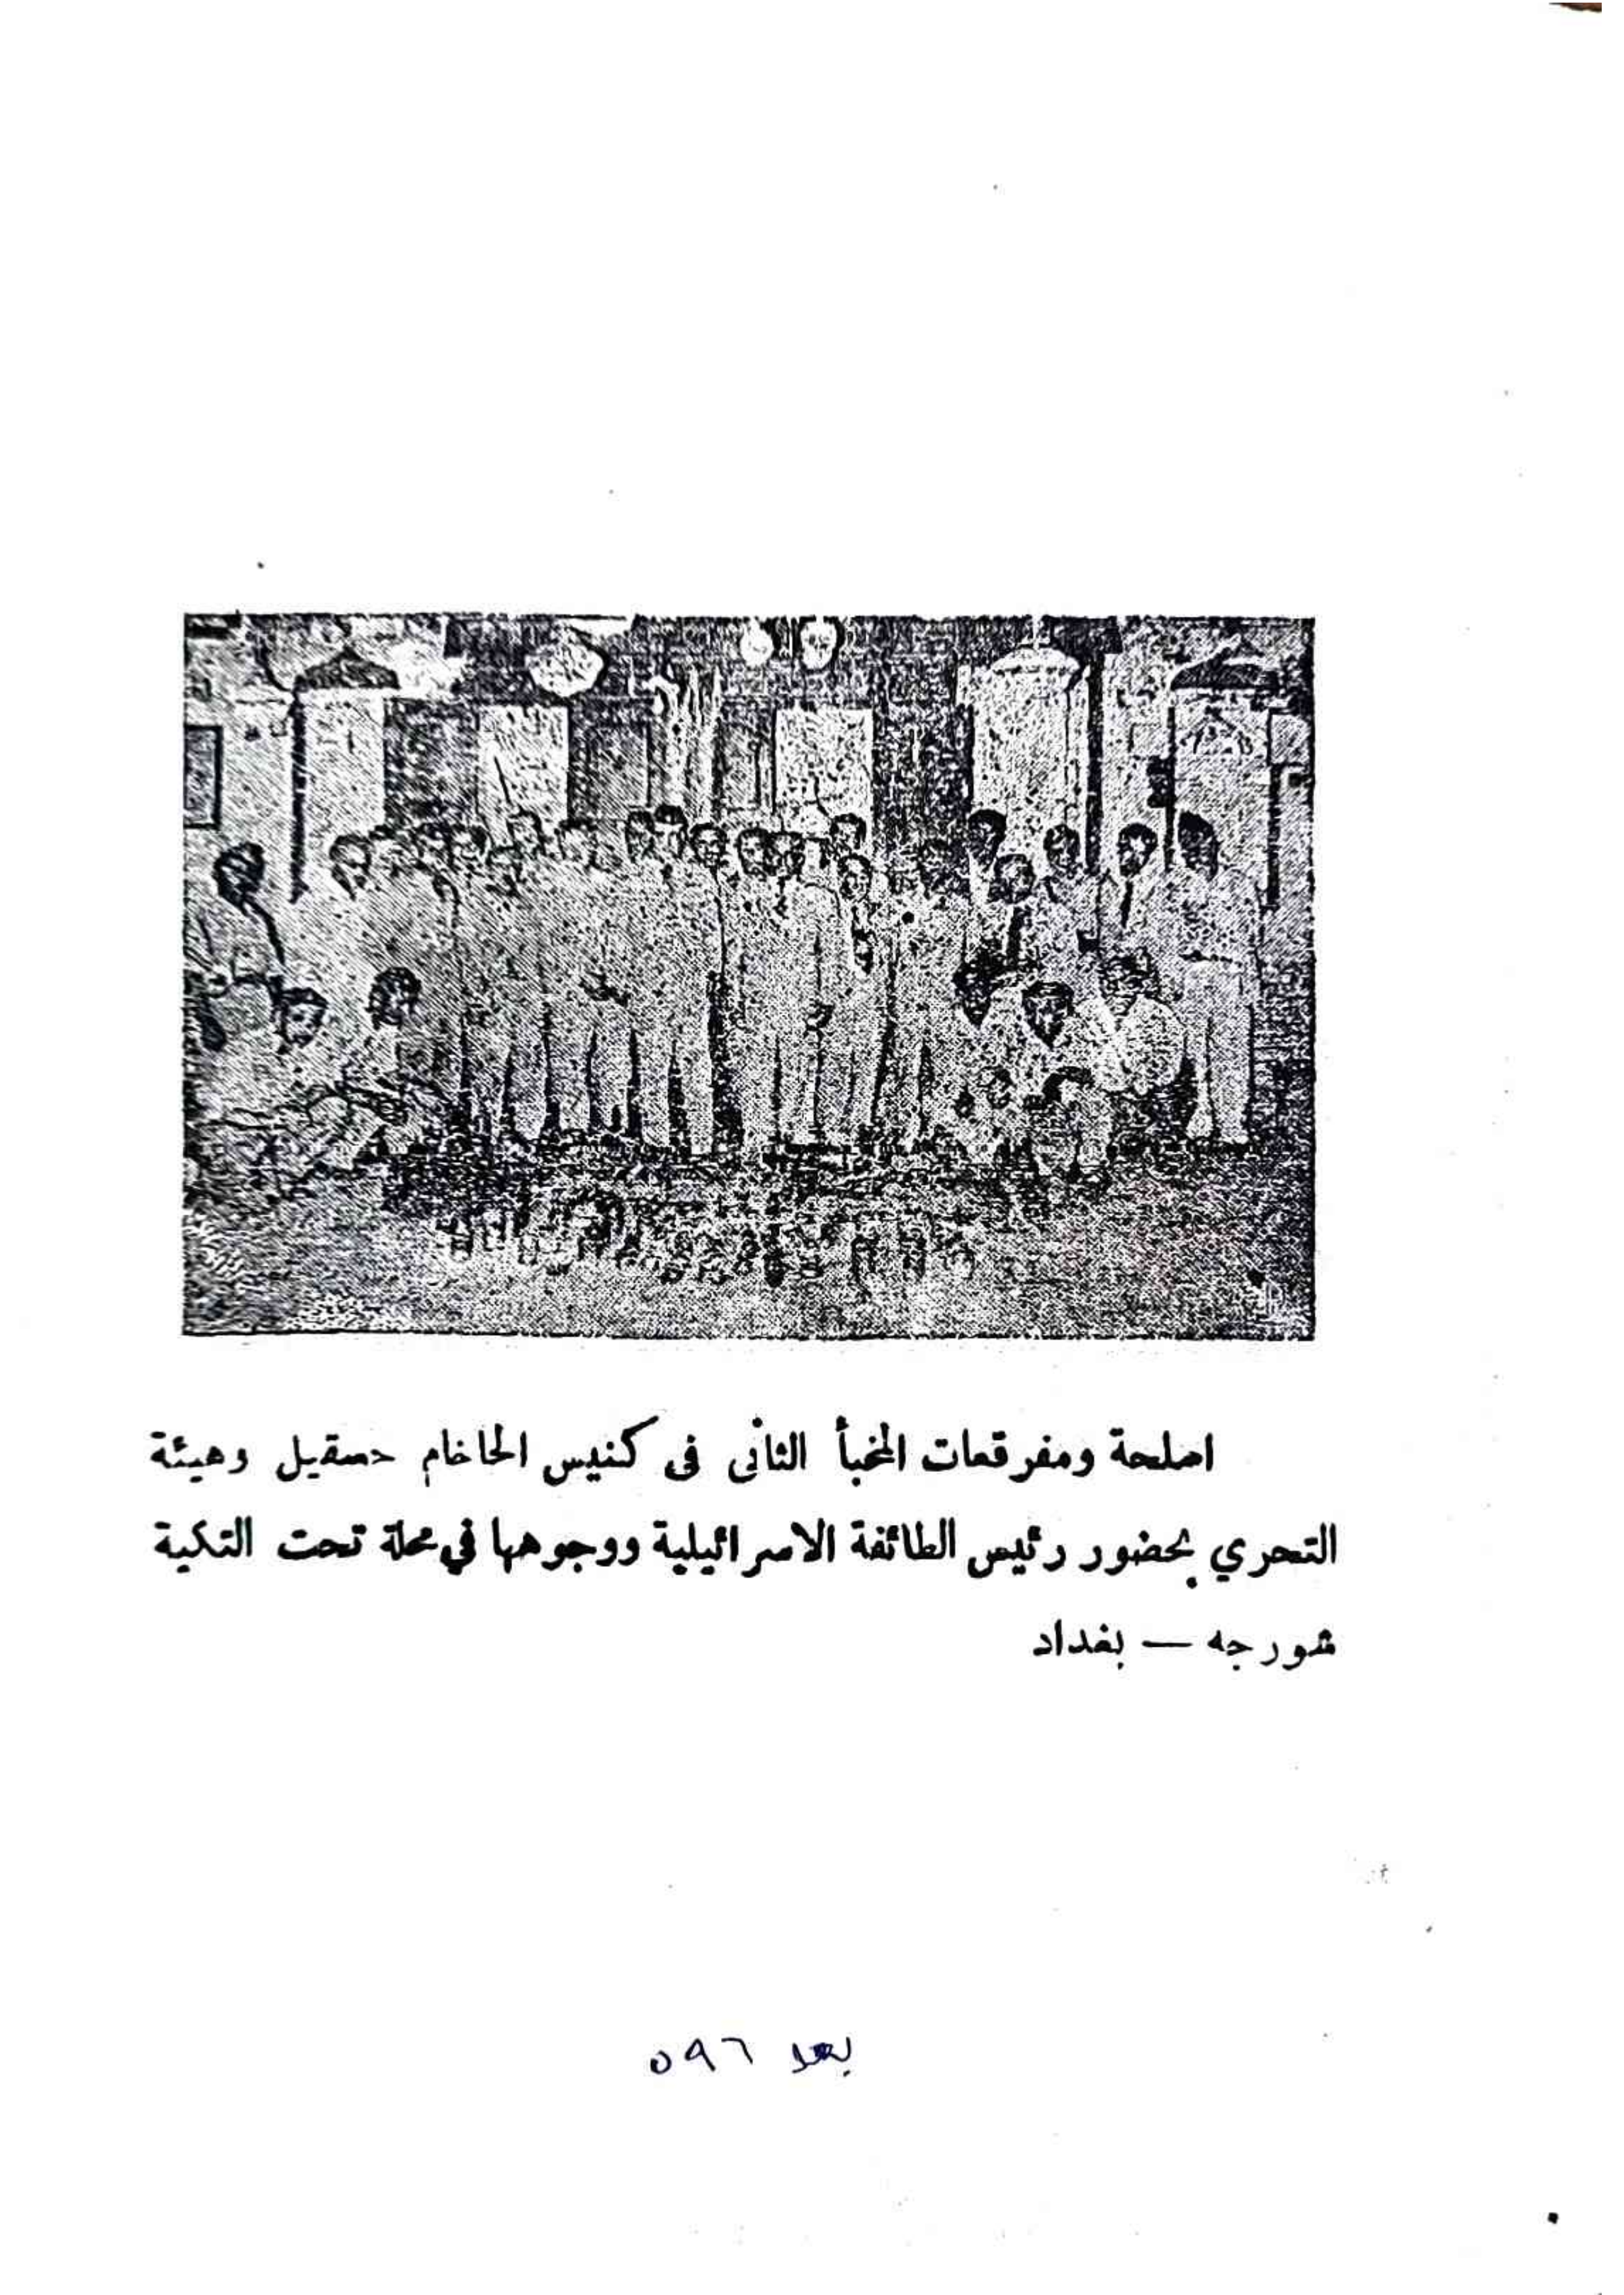 اسلحة ومفرقعات المخبأ الثاني في كنيس الحاخام حسقيل وهيئة
التحري بحضور رئيس الطائفة الاسرائيلية ووجوهها في محلة تحت التكية
شورجه — بغداد
بعد ٥٩٦